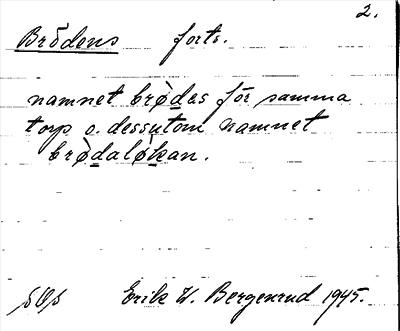 2.
Brödens forts.
namnet brødas för samma
torp o. dessutom namnet
brødaløkan.
Erik W. Bergenrud 1945.